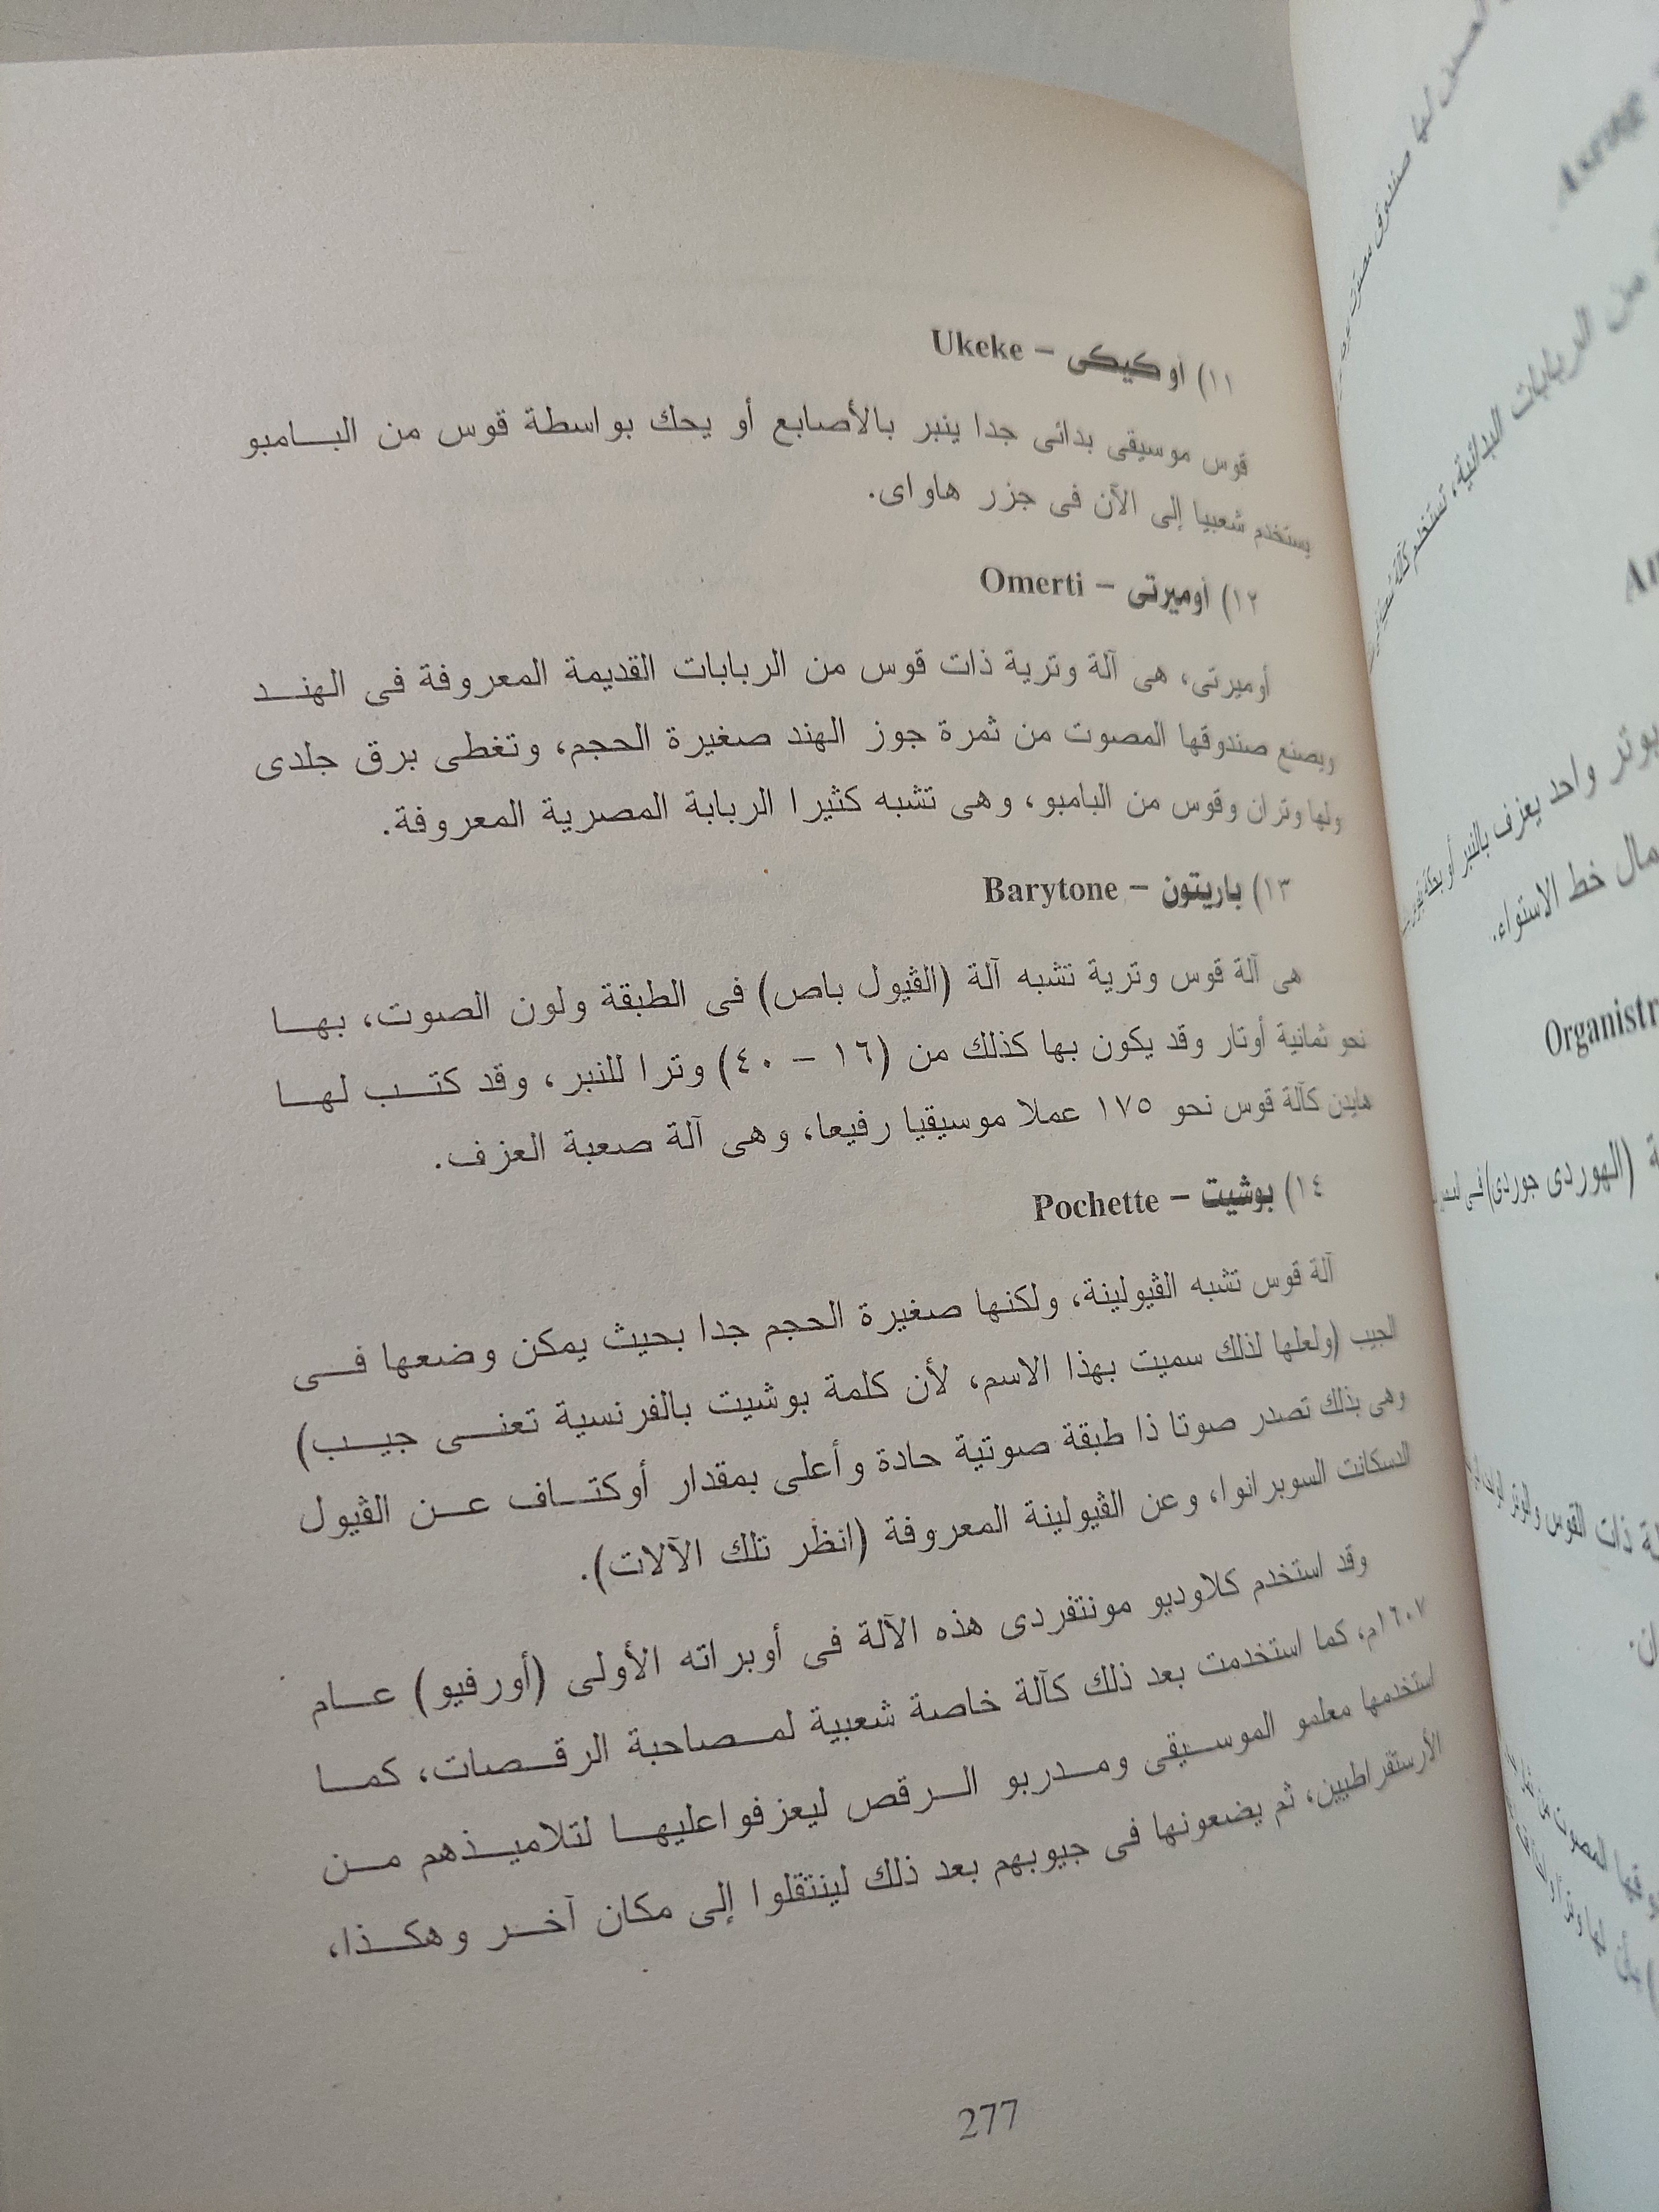 ١١) أوكيكى – Ukeke
قوس موسيقى بدائى جدا ينبر بالأصابع أو يحك بواسطة قوس من البامبو
يستخدم شعبيا إلى الآن فى جزر هاواى.
١٢) أوميرتى – Omerti
أوميرتى، هى آلة وترية ذات قوس من الربابات القديمة المعروفة فى الهند
ويصنع صندوقها المصوت من ثمرة جوز الهند صغيرة الحجم، وتغطى برق جلدى
ولها وتران وقوس من البامبو، وهى تشبه كثيرا الربابة المصرية المعروفة.
١٣) باريتون – Barytone
هى آلة قوس وترية تشبه آلة (الڤيول باص) فى الطبقة ولون الصوت، بها
نحو ثمانية أوتار وقد يكون بها كذلك من (١٦ – ٤٠) وترا للنبر، وقد كتب لها
هايدن كآلة قوس نحو ١٧٥ عملا موسيقيا رفيعا، وهى آلة صعبة العزف.
١٤) بوشيت – Pochette
آلة قوس تشبه الڤيولينة، ولكنها صغيرة الحجم جدا بحيث يمكن وضعها فى
الجيب (ولعلها لذلك سميت بهذا الاسم، لأن كلمة بوشيت بالفرنسية تعنى جيب)
وهى بذلك تصدر صوتا ذا طبقة صوتية حادة وأعلى بمقدار أوكتاف عن الڤيول
الدسكانت السوبرانوا، وعن الڤيولينة المعروفة (انظر تلك الآلات).
وقد استخدم كلاوديو مونتفردى هذه الآلة فى أوبراته الأولى (أورفيو) عام
١٦٠٧م، كما استخدمت بعد ذلك كآلة خاصة شعبية لمصاحبة الرقصات، كما
استخدمها معلمو الموسيقى ومدربو الرقص ليعزفوا عليها لتلاميذهم من
الأرستقراطيين، ثم يضعونها فى جيوبهم بعد ذلك لينتقلوا إلى مكان آخر وهكذا،
277
من الربابات البدائية، تستخدم كآلة
بوتر واحد يعزف بالنبر أو
خط الاستواء.
(الهوردى جوردى) فى
ذات القوس